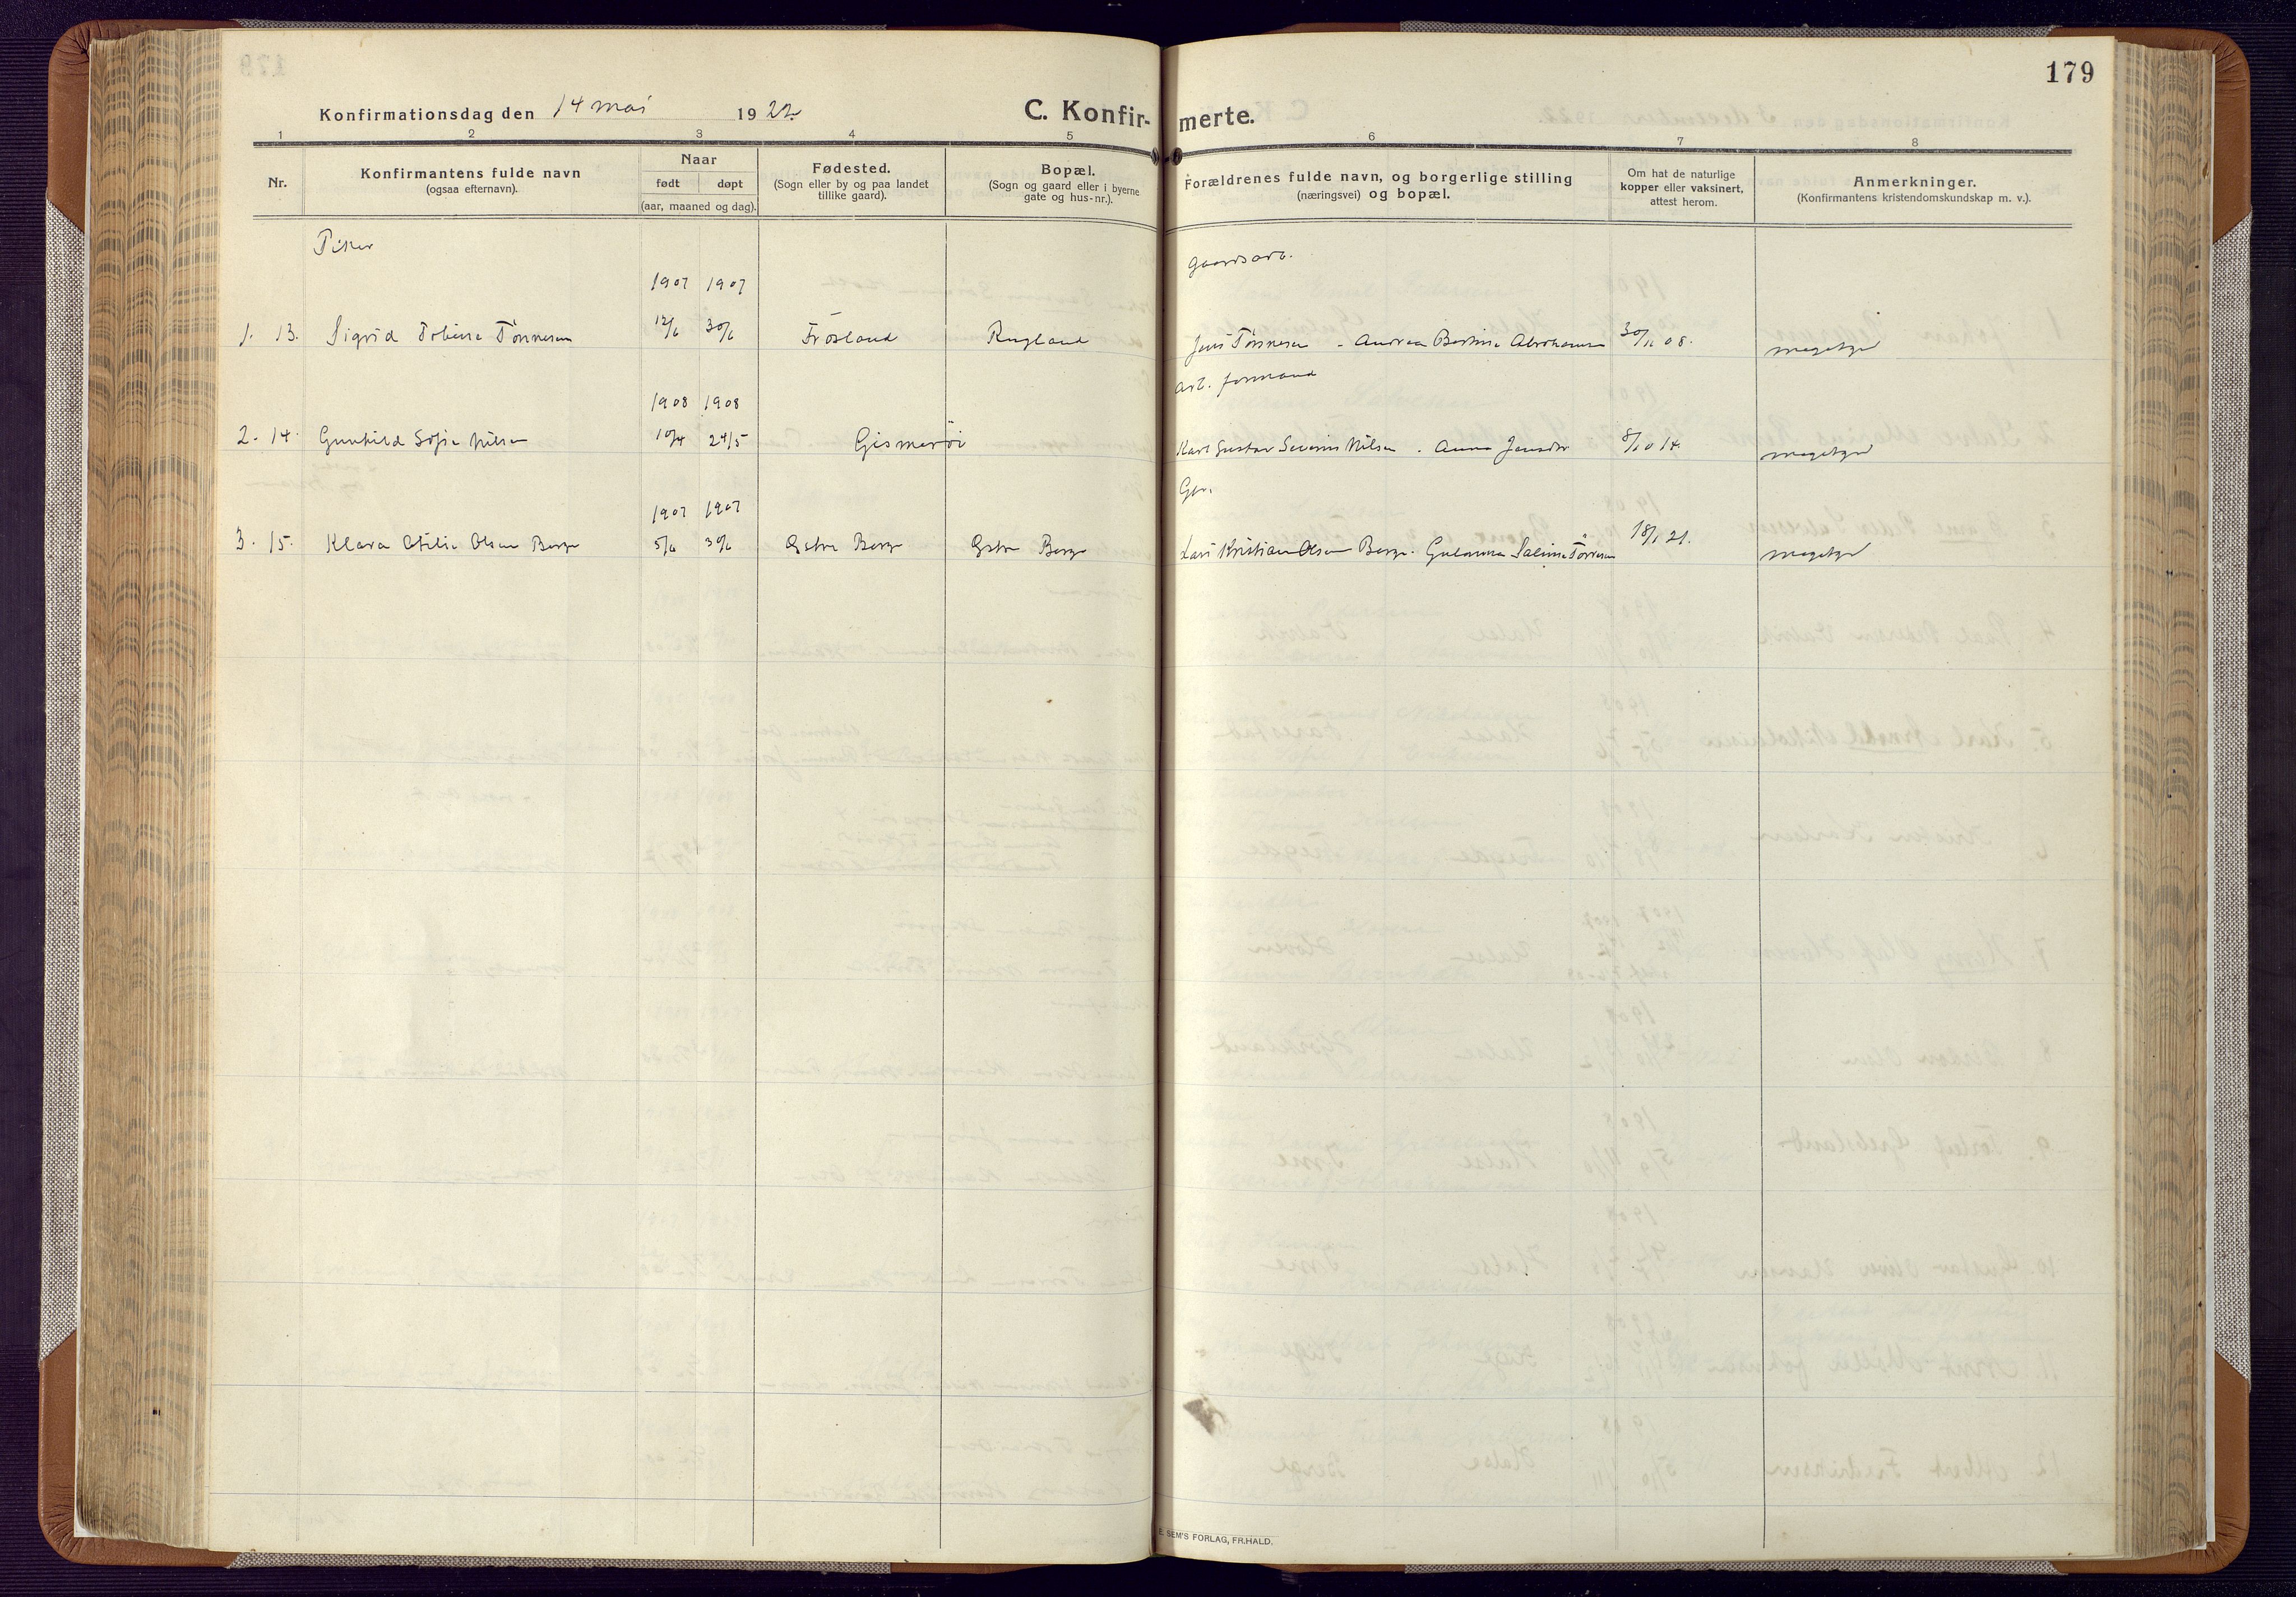 179
Konfirmationsdag den 14 mai 1922.
C. Konfirmerte.
1 2 3 4 5 6 7 8
Nr.
Konfirmantens fulde navn
(ogsaa efternavn).
Naar
født døpt
(aar, maaned og dag).
Fødested.
(Sogn eller by og paa landet
tillike gaard).
Bopæl.
(Sogn og gaard eller i byerne
gate og hus-nr.).
Forældrenes fulde navn, og borgerlige stilling
(næringsvei) og bopæl.
Om hat de naturlige
kopper eller vaksinert,
attest herom.
Anmerkninger.
(Konfirmantens kristendomskundskap m. v.).
Piker
Gaardsarb.
1907 1907
1. 13. Sigrid Tobine Tönnesen 12/6 30/6 Frösland Rugland Jens Tönnesen - Andrea Bertine Abrahamsen 30/11 08. megetgd
Arb. formand
1908 1908
2. 14. Gunhild Sofie Nilsen 10/4 24/5 Gismeröi Karl Gustav Severin Nilsen . Anna Jensdtr 8/10 14. megetgd
Gbr.
1907 1907
3. 15. Klara Otilie Olsen Berge 5/6 30/6 Östre Berge Östre Berge Lars Kristian Olsen Berge. Gulomma Saline Tönnesen 18/1 21. megetgd
E. SEM'S FORLAG, FR.HALD.